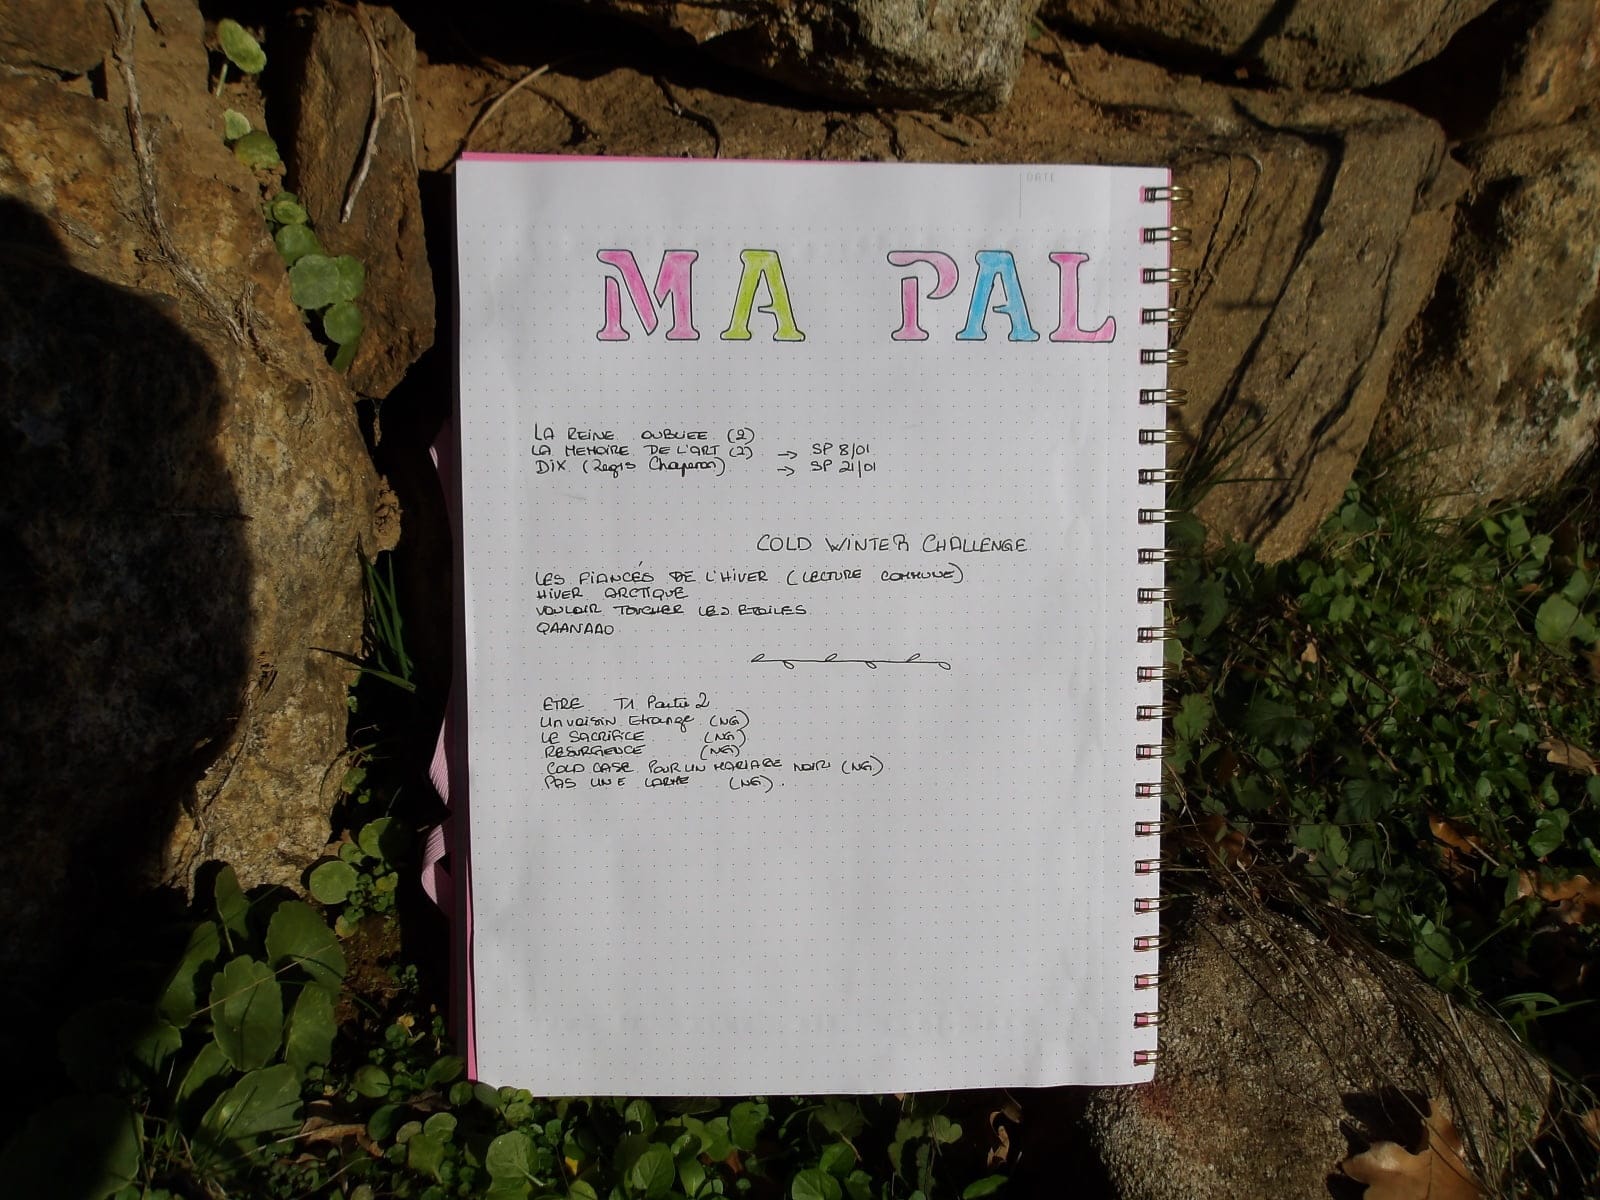 DATE
MA PAL
LA REINE OUBLIEE (2)
LA MEMOIRE DE L'ART (2) → SP 8/01
DIX (Regis Chaperon) → SP 21/01
COLD WINTER CHALLENGE
LES FIANCÉS DE L'HIVER (LECTURE COMMUNE)
HIVER ARCTIQUE
VOULOIR TOUCHER LES ETOILES
QAANAAQ
ETRE T1 Partie 2
Un voisin Etrange (NG)
LE SACRIFICE (NG)
RESURGENCE (NG)
COLD CASE POUR UN MARIAGE NOIR (NG)
PAS UNE LARME (NG).